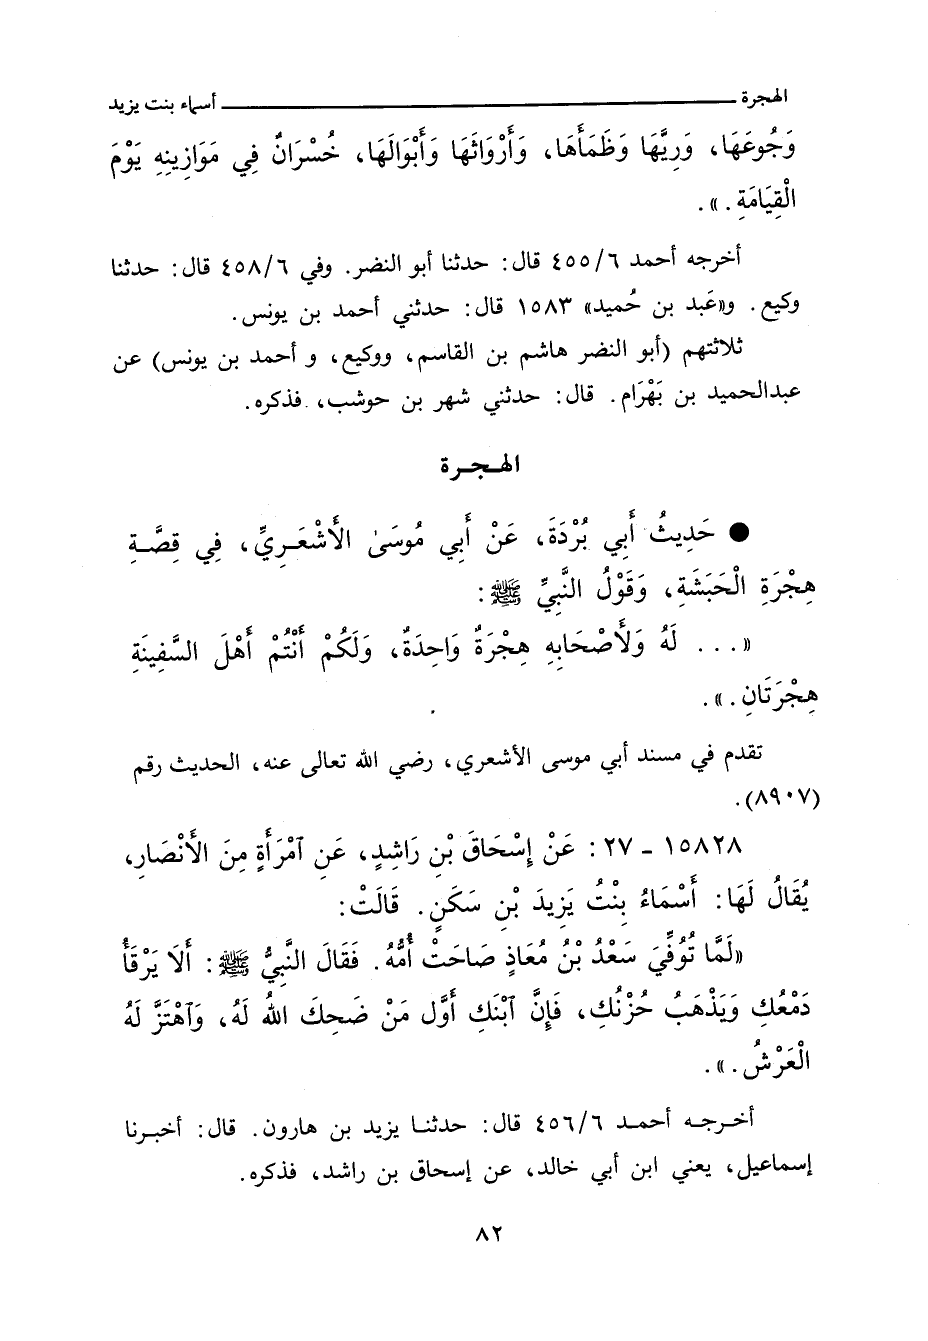 الهجرة ــــــــــــــــــــ أسماء بنت يزيد
وَجُوعَهَا، وَرِيَّهَا وَظَمَأَهَا، وَأَرْوَاثَهَا وَأَبْوَالَهَا، خُسْرَانٌ فِي مَوَازِينِهِ يَوْمَ
الْقِيَامَةِ.».
أخرجه أحمد ٦/٤٥٥ قال: حدثنا أبو النضر. وفي ٦/٤٥٨ قال: حدثنا
وكيع. و«عَبد بن حُميد» ١٥٨٣ قال: حدثني أحمد بن يونس.
ثلاثتهم (أبو النضر هاشم بن القاسم، ووكيع، و أحمد بن يونس) عن
عبدالحميد بن بَهْرَام. قال: حدثني شهر بن حوشب، فذكره.
الهجرة
● حَدِيثُ أَبِي بُرْدَةَ، عَنْ أَبِي مُوسَىٰ الأَشْعَرِيِّ، فِي قِصَّةِ
هِجْرَةِ الْحَبَشَةِ، وَقَوْلُ النَّبِيِّ ﷺ:
«... لَهُ وَلأَصْحَابِهِ هِجْرَةٌ وَاحِدَةٌ، وَلَكُمْ أَنْتُمْ أَهْلَ السَّفِينَةِ
هِجْرَتَانِ.».
تقدم في مسند أبي موسى الأشعري، رضي الله تعالى عنه، الحديث رقم
(٨٩٠٧).
١٥٨٢٨ ـ ٢٧: عَنْ إِسْحَاقَ بْنِ رَاشِدٍ، عَنِ ٱمْرَأَةٍ مِنَ الأَنْصَارِ،
يُقَالُ لَهَا: أَسْمَاءُ بِنْتُ يَزِيدَ بْنِ سَكَنٍ. قَالَتْ:
«لَمَّا تُوُفِّيَ سَعْدُ بْنُ مُعَاذٍ صَاحَتْ أُمُّهُ. فَقَالَ النَّبِيُّ ﷺ: أَلَا يَرْقَأُ
دَمْعُكِ وَيَذْهَبُ حُزْنُكِ، فَإِنَّ ٱبْنَكِ أَوَّل مَنْ ضَحِكَ اللهُ لَهُ، وَٱهْتَزَّ لَهُ
الْعَرْشُ.».
أخرجه أحمد ٦/٤٥٦ قال: حدثنا يزيد بن هارون. قال: أخبرنا
إسماعيل، يعني ابن أبي خالد، عن إسحاق بن راشد، فذكره.
٨٢